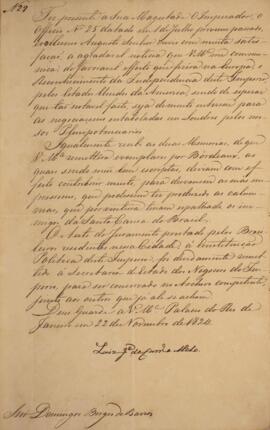 Nº 29
Fiz presente a Sua Magestade O Imperador, o
Officio Nº 25 datado de 1 de Julho proximo passado,
e o Mesmo Augusto Senhor ouvio com muita satis-
fação, a agradavel noticia que V. Mce communica,
do favoravel effeito que produzio na Europa o
Reconhecimento da Independencia deste Imperio
pelos Estados Unidos da America, sendo de esperar
que tão notavel facto, seja de muito interesse para
as negociações entaboladas em Londres pelos nos-
sos Plenipotenciarios.
Igualmente recebi as duas Memorias, de que
V. Mce remetteo exemplares por Bordeaux, as
quaes sendo mui bem escriptas, devem com ef-
feito contribuir muito, para desvanecer as más im-
pressões, que poderião ter produzido as calum-
nias, que por ventura tenhão espalhado os ini-
migos da Santa Causa do Brasil.
O Auto do Juramento prestado pelos Brasi-
leiros residentes nessa Cidade, á Constituição
Politica deste Imperio, foi devidamente remet-
tido á Secretaria de Estado dos Negocios do Im-
perio, para ser conservado no Archivo competente,
junto aos outros que já ali se achão.
Deos Guarde a V. Mce Palacio do Rio de
Janeiro em 22 de Novembro de 1824.
Luiz Jé de Carvº e Mello.
Snr Domingos Borges de Barros